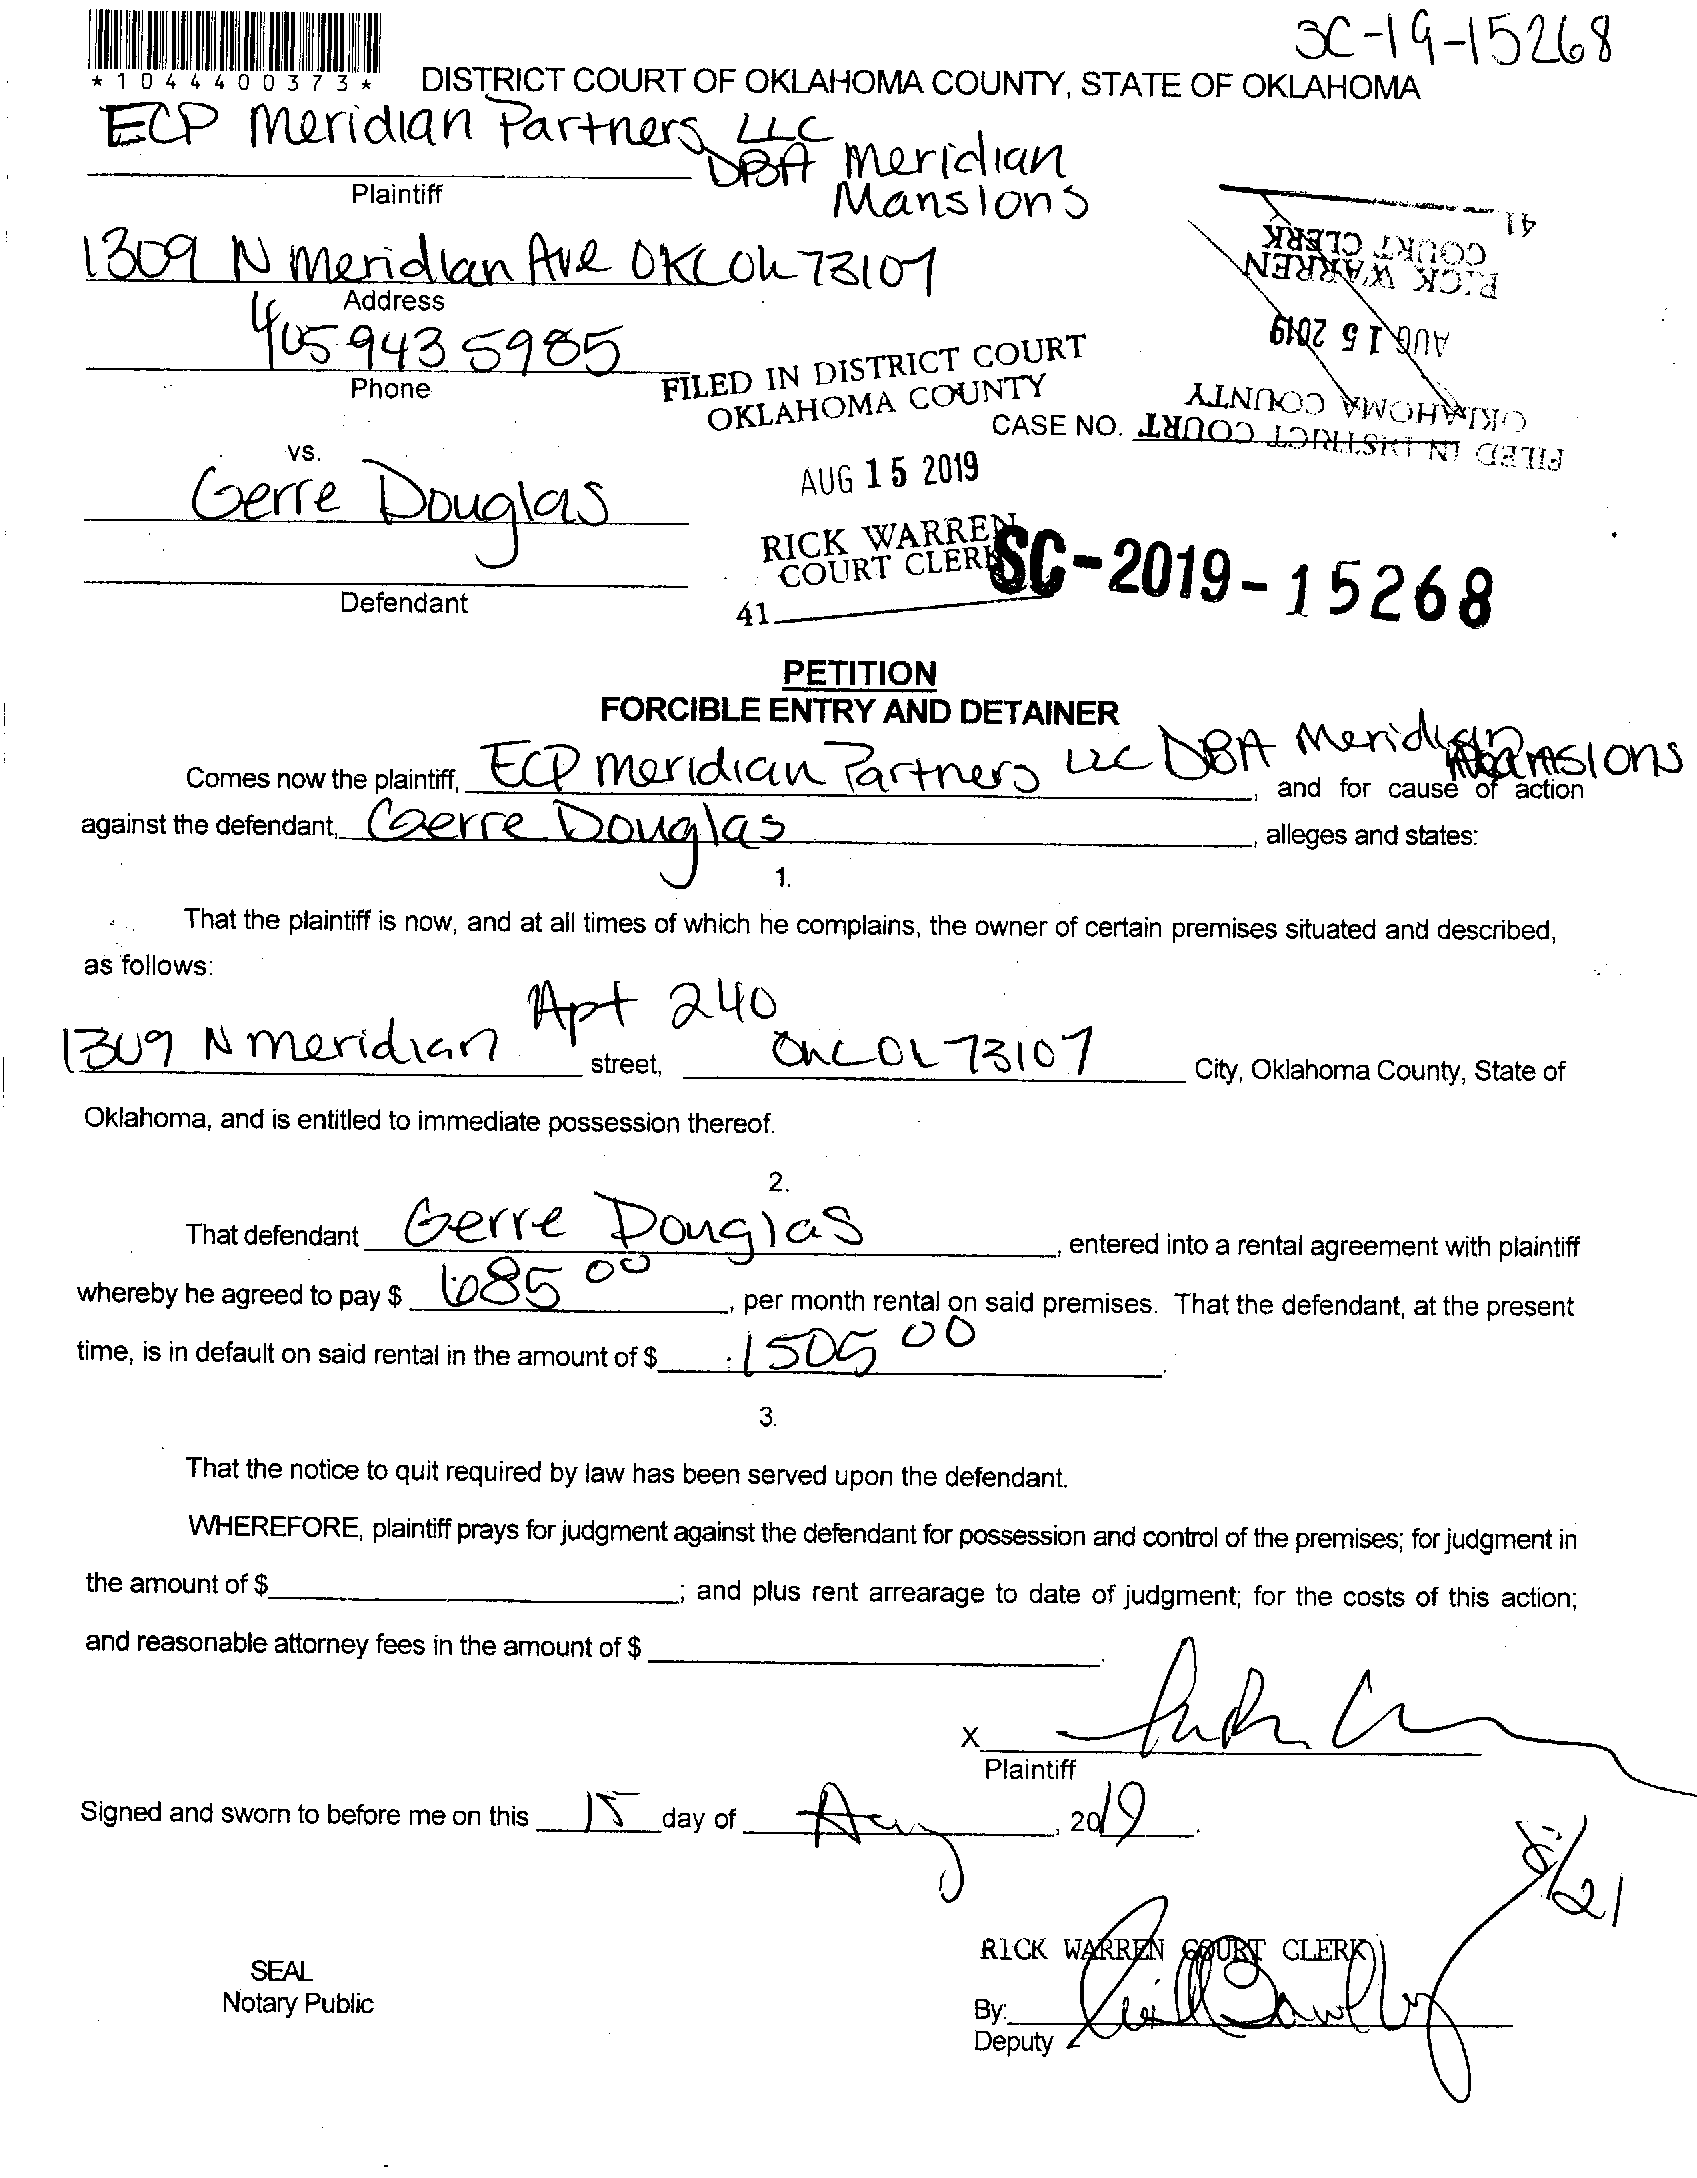 SC-19-15268
*1044400373*
DISTRICT COURT OF OKLAHOMA COUNTY, STATE OF OKLAHOMA
ECP Meridian Partners LLC
DBA Meridian
Mansions
Plaintiff
1309 N Meridian Ave OKC Ok 73107
Address
405 943 5985
Phone
FILED IN DISTRICT COURT
OKLAHOMA COUNTY
AUG 15 2019
RICK WARREN
COURT CLERK
41
CASE NO.
FILED IN DISTRICT COURT
OKLAHOMA COUNTY
AUG 15 2019
RICK WARREN
COURT CLERK
41
SC-2019-15268
vs.
Gerre Douglas
Defendant
PETITION
FORCIBLE ENTRY AND DETAINER
Comes now the plaintiff, ECP Meridian Partners LLC DBA Meridian Mansions, and for cause of action
against the defendant, Gerre Douglas, alleges and states:
1.
That the plaintiff is now, and at all times of which he complains, the owner of certain premises situated and described,
as follows:
Apt 240
1309 N Meridian street, OKC Ok 73107 City, Oklahoma County, State of
Oklahoma, and is entitled to immediate possession thereof.
2.
That defendant Gerre Douglas, entered into a rental agreement with plaintiff
whereby he agreed to pay $ 685 00, per month rental on said premises. That the defendant, at the present
time, is in default on said rental in the amount of $ 1505 00.
3.
That the notice to quit required by law has been served upon the defendant.
WHEREFORE, plaintiff prays for judgment against the defendant for possession and control of the premises; for judgment in
the amount of $; and plus rent arrearage to date of judgment; for the costs of this action;
and reasonable attorney fees in the amount of $.
X
Plaintiff
Signed and sworn to before me on this 15 day of Aug, 2019.
8/21
RICK WARREN COURT CLERK
SEAL
Notary Public
By:
Deputy